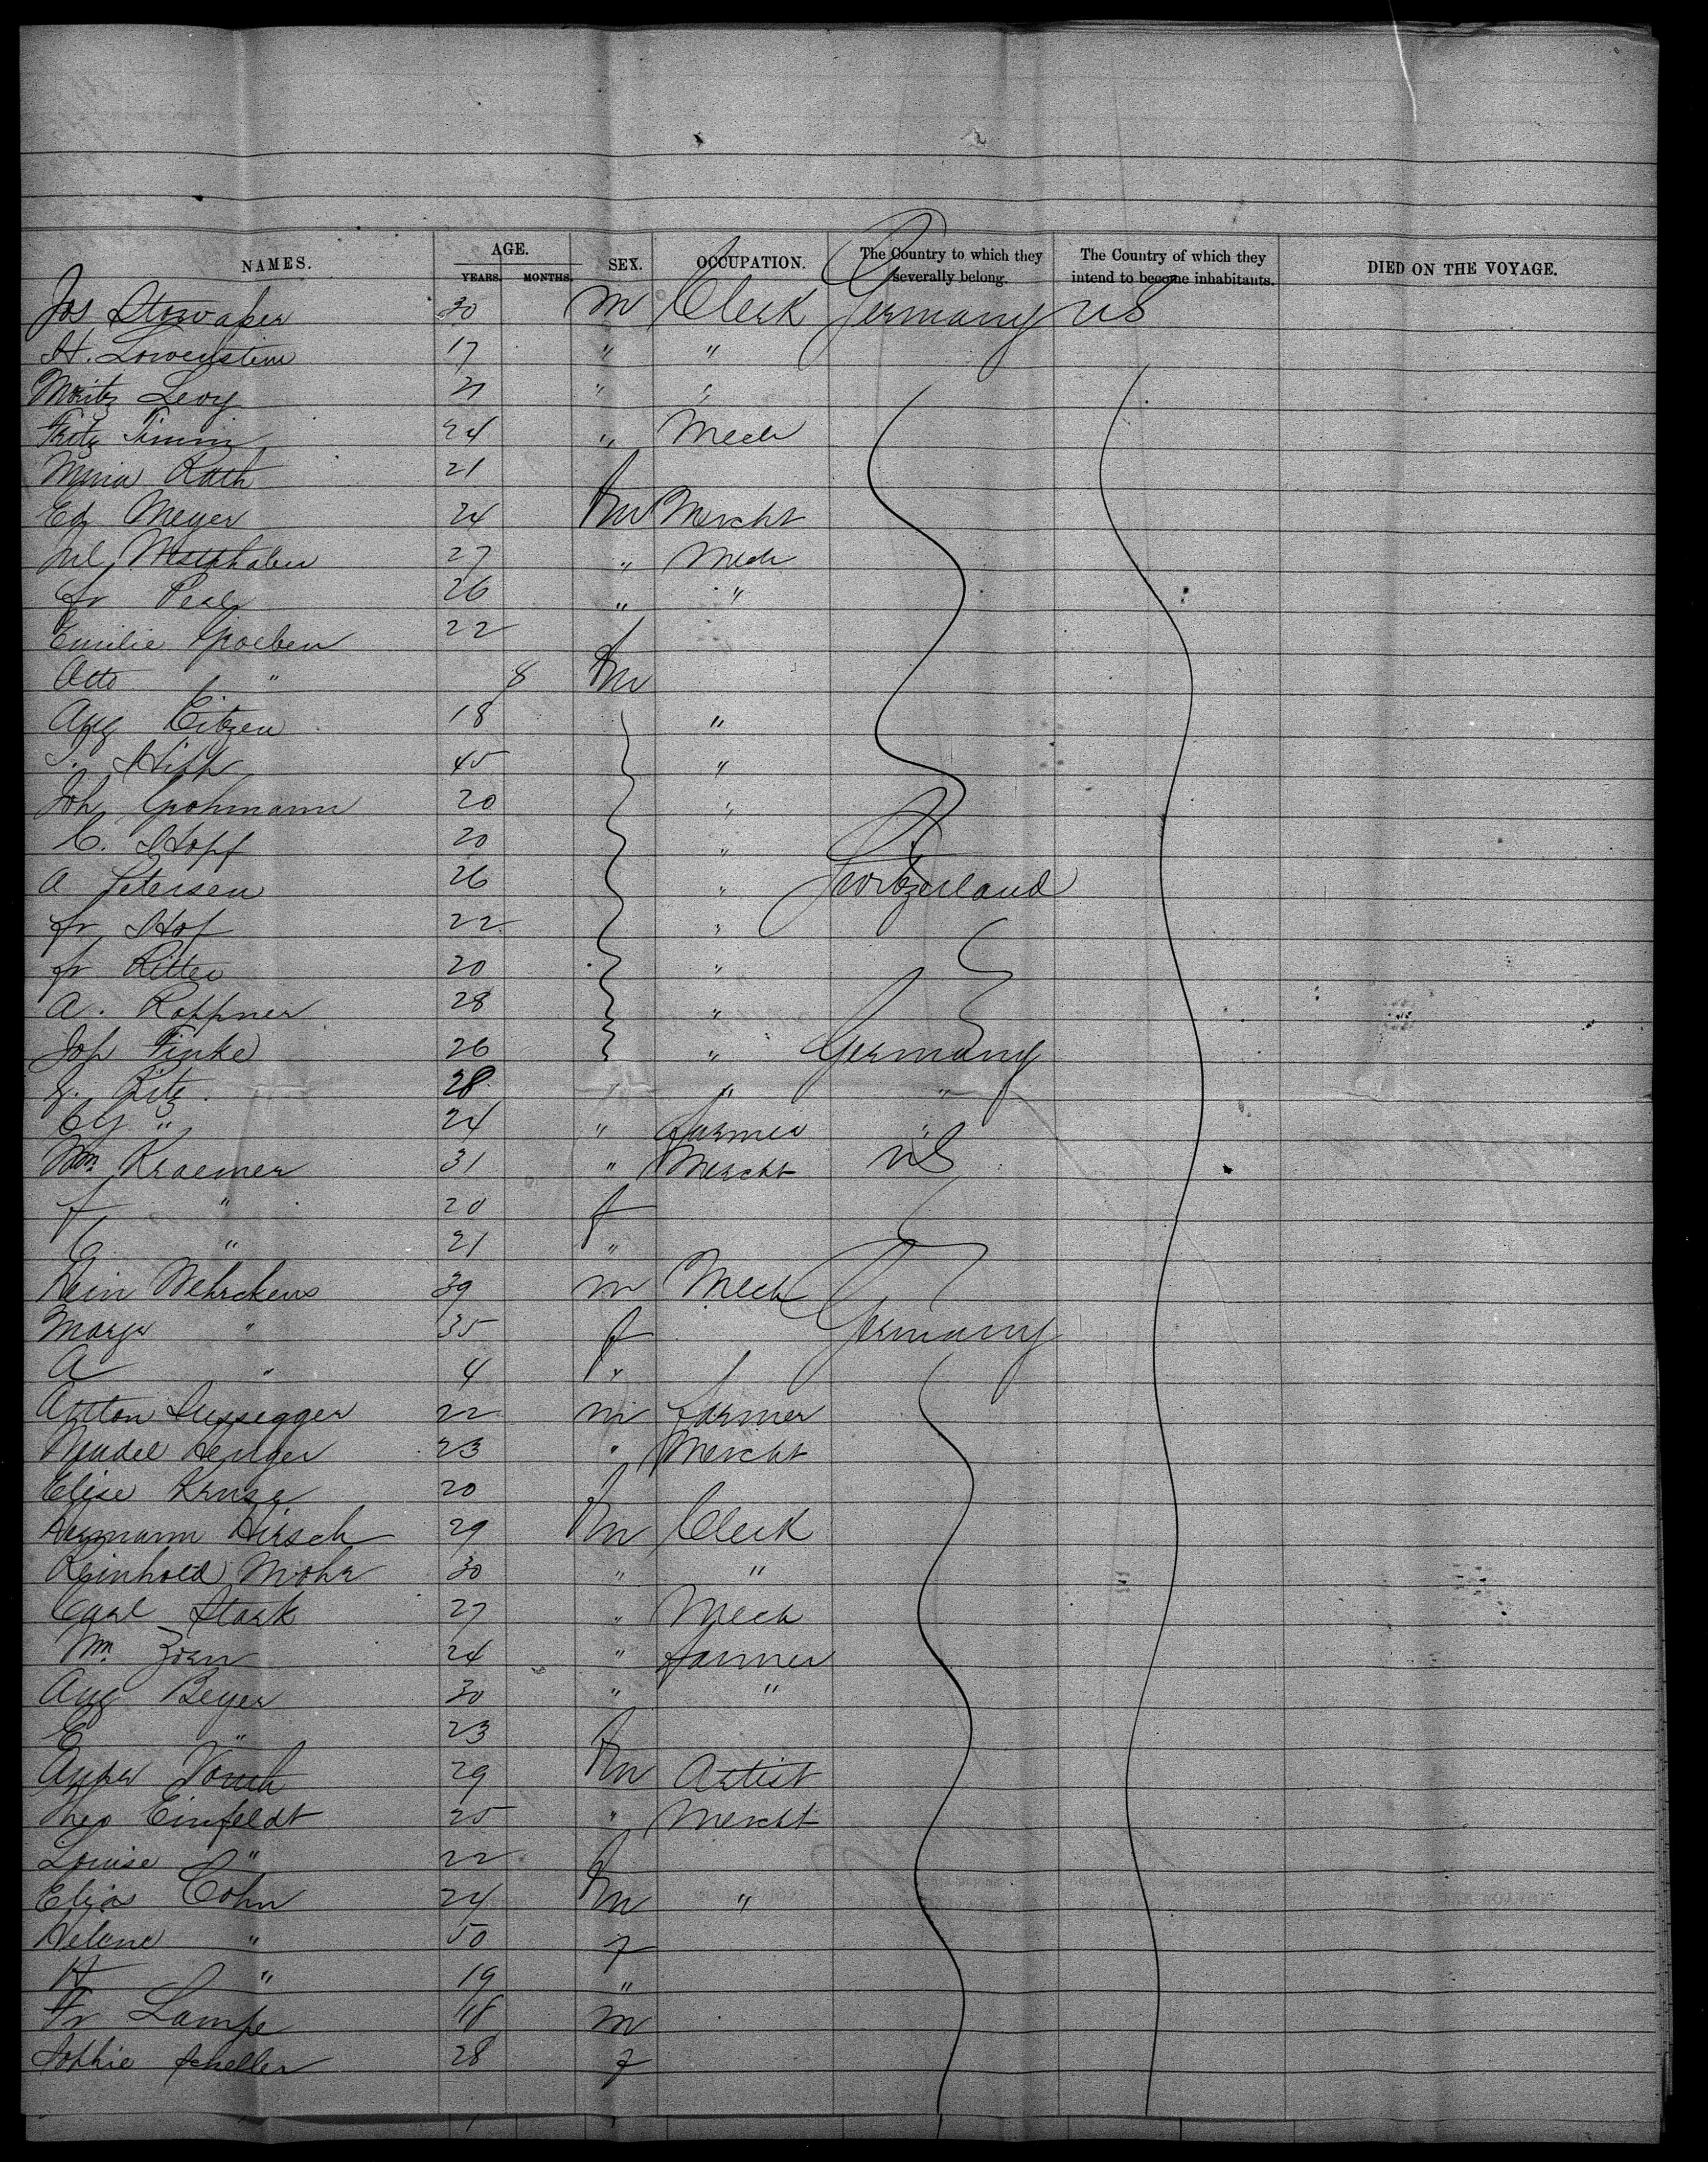 NAMES. AGE. YEARS. MONTHS. SEX. OCCUPATION. The Country to which they severally belong. The Country of which they intend to become inhabitants. DIED ON THE VOYAGE.
Jos 30 m Clerk Germany US
H. Lowenstein 17 " "
Moritz Levy 21 " "
Fritz Timm 24 " Mech
Mina Rath 21 f
Ed Meyer 24 m Mercht
Jul 27 " Mech
fr 26 " "
Emilie Groeben 22 f
Otto " 8 m
Aug Eitzen 18 "
45 "
Joh Grohmann 20 "
C. Hopf 20 "
A Petersen 26 " Switzerland
fr Hof 22 "
fr Ritter 20 "
A. Roppner 28 "
Jos Finke 26 " Germany
Ritz 28 " " "
" 24 " farmer "
Wm Kraemer 31 " Mercht US
f " 20 f
C " 21 "
Hein Wehrckens 39 m Mech
Margr " 35 f Germany
A " 4 "
Anton 22 m farmer
23 " Mercht
Elise Kruse 20 f
Hermann Hirsch 29 m Clerk
Reinhold Mohr 30 " "
Carl Stark 27 " Mech
Wm Zorn 24 " farmer
Aug Beyer 30 " "
E " 23 f
29 m Artist
Theo Einfeldt 25 " Mercht
Louise " 22 f
Elias Cohn 24 m "
Helene " 50 f
H " 19 "
Fr Lampe 18 m
Sophie Scheller 28 f